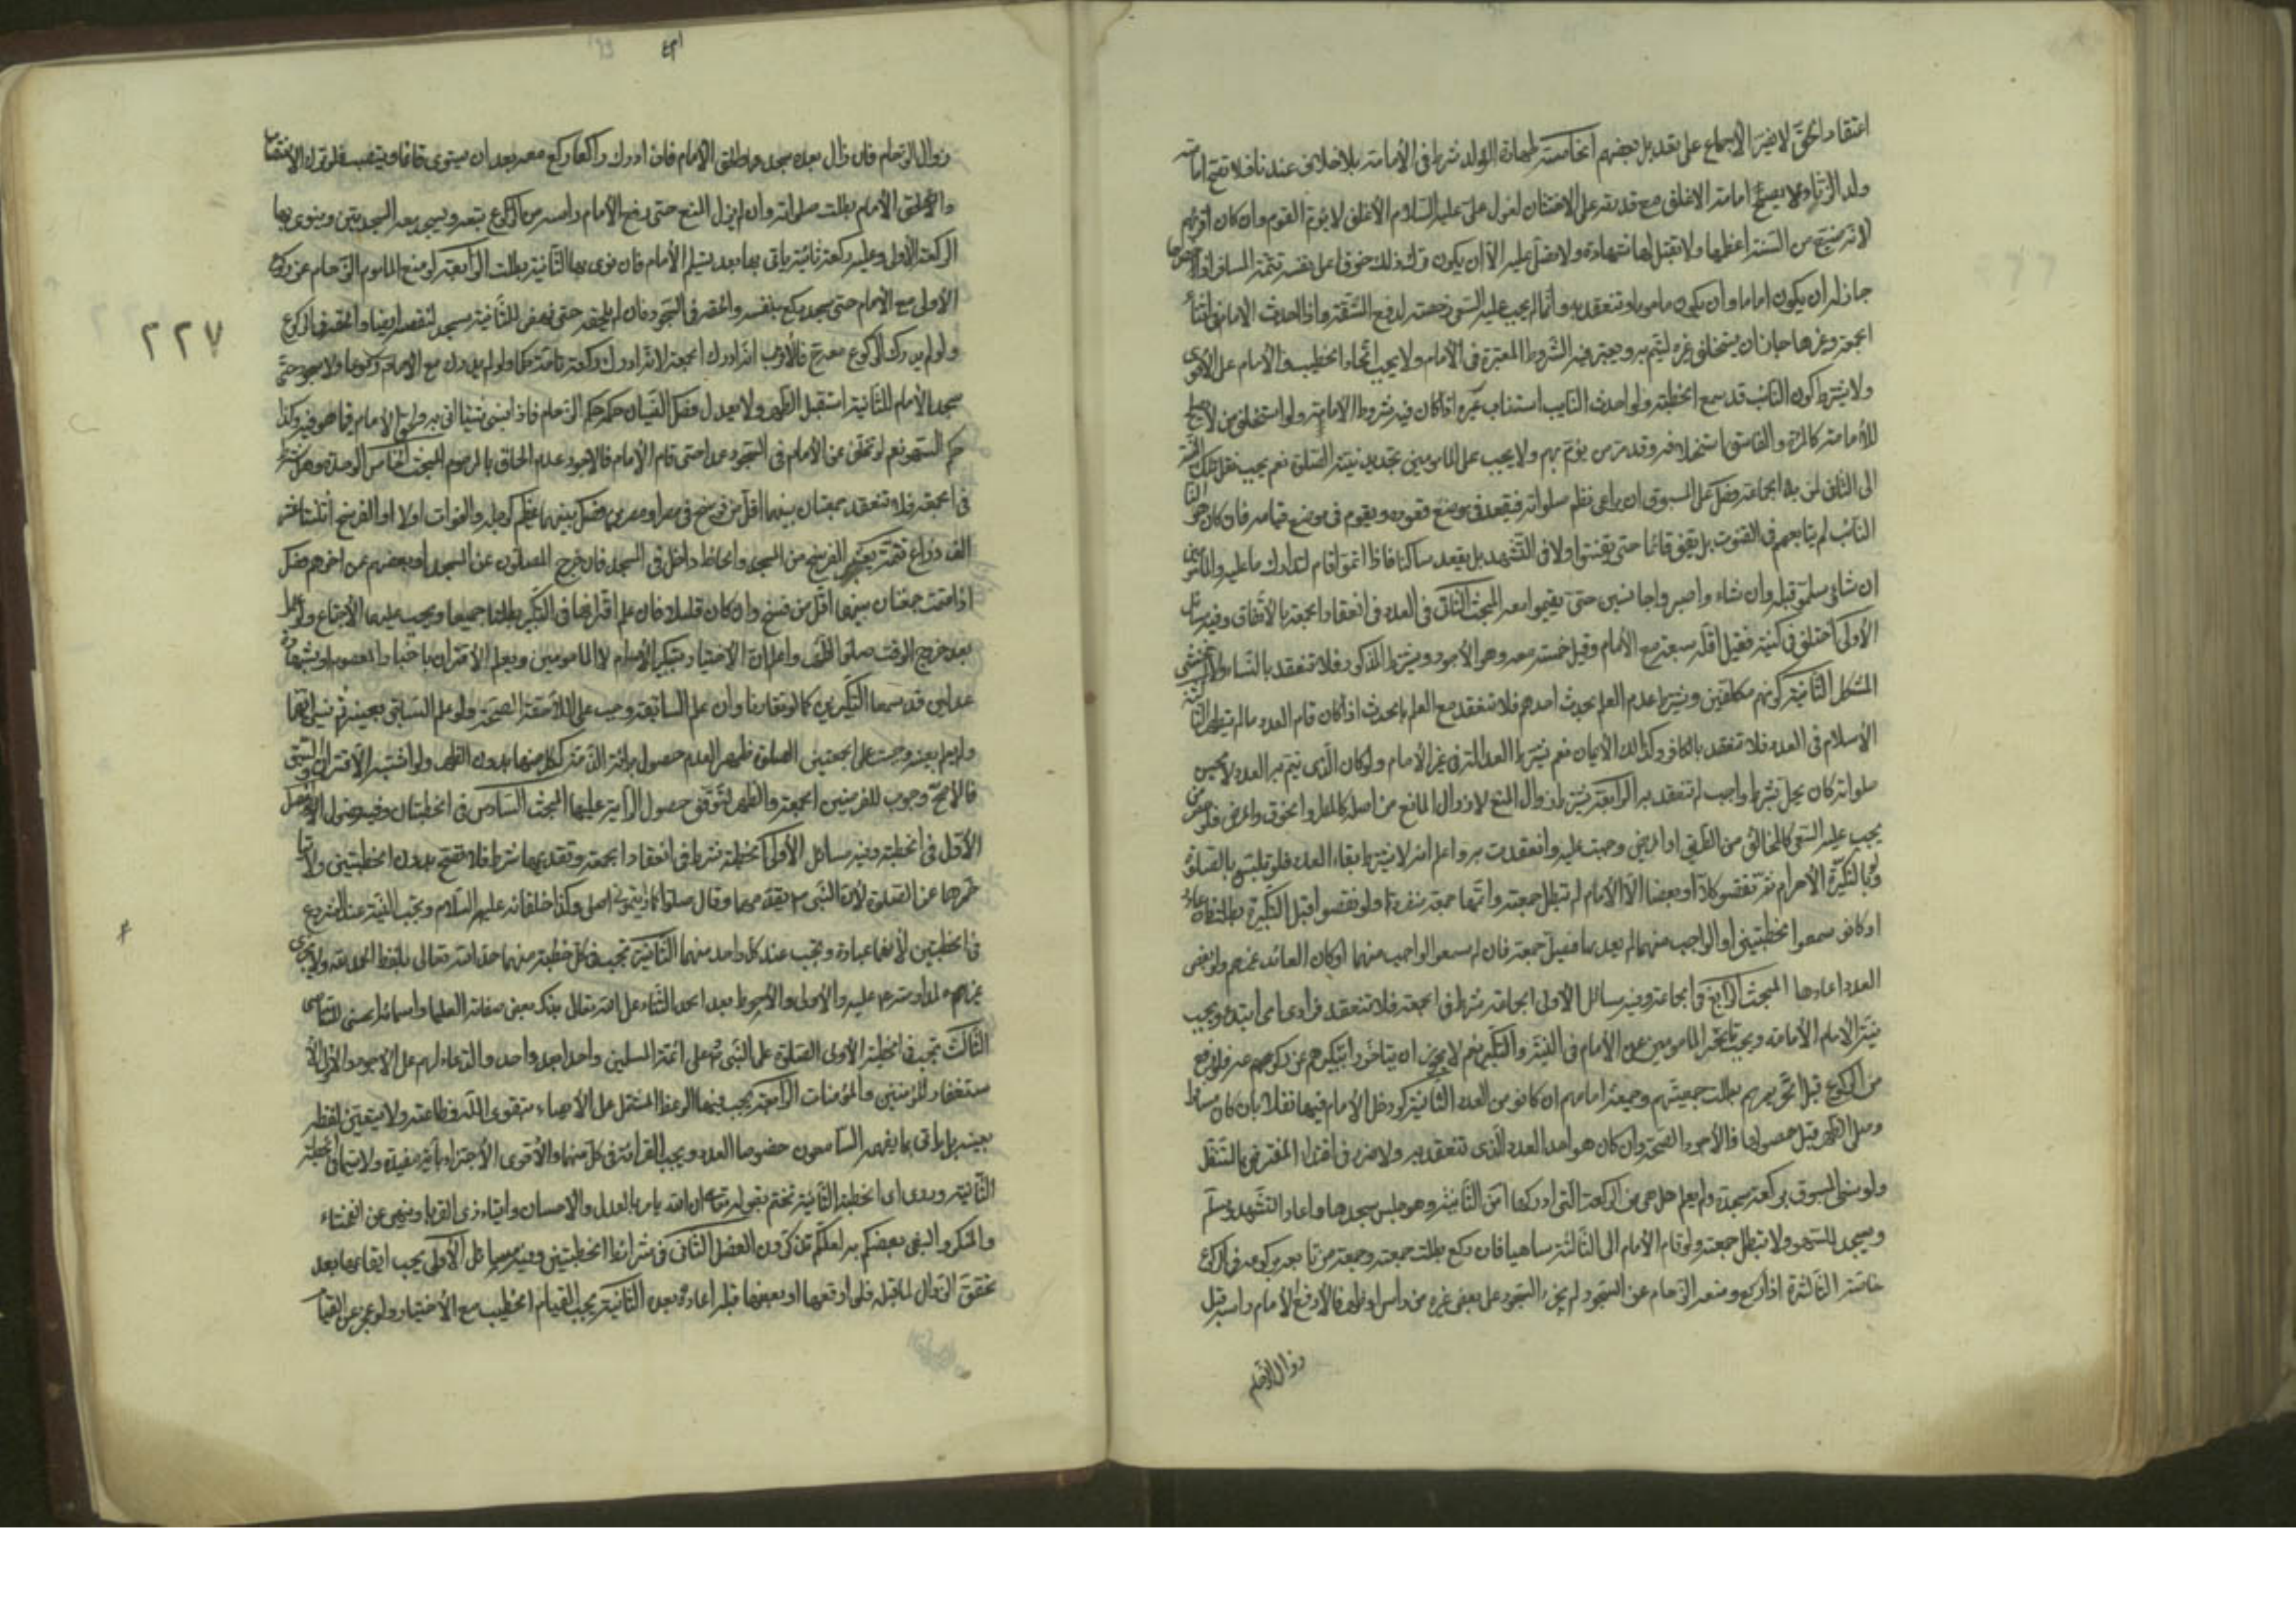 اعتقاد الحق لا يضر الاجماع على تعديل بعضهم الخامسة طهارة المولد شرط في الأمامة بلا خلاف عندنا فلا تصح امامة
ولد الزنا ولا يصح امامة الاغلف مع قدرته على الاختتان لقول علي عليه السلام الأغلف لا يؤم القوم وان كان اقرئهم
لانه ضيع من السنة اعظمها ولا تقبل له شهادة ولا يصلى عليه الا ان يكون ترك ذلك خوفا على نفسه تتمة المسافر اذا
جاز له ان يكون اماما وان يكون ماموما وتنعقد به وانما لم يجب عليه السعى رخصة لدفع المشقة واذا احدث الامام في اثناء
الجمعة وغيرها جاز ان يستخلف غيره ليتم بهم ويعتبر فيه الشروط المعتبرة في الأمام ولا يجب اتحاد الخطيب والأمام على الأقوى
ولا يشترط كون النائب قد سمع الخطبة ولو احدث النايب استناب غيره اذا كان فيه شروط الامامة ولو استخلف من لا يصلح
للأمامة كالمرئة والفاسق استخلافه وقدم من يؤم بهم ولا يجب على المأمومين تجديد نية الصلوة نعم يجب نقل تلك النية
الى الثاني لمن الجماعة فصل على المسبوق ان يراعى نظم صلواته فيقعد في موضع قعوده ويقوم في موضع قيامه فان كان هو
النائب لم يتابعهم في القنوت بل يقف قائما حتى يقنتوا ولا في التشهد بل يقعد ساكتا فاذا اتموا قام لتدارك ما عليه والمأمومين
ان شائوا سلموا قبله وان شاءوا صبروا جالسين حتى يقيموا معه المبحث الثاني في العدد في انعقاد الجمعة بالاتفاق وفيه مسائل
الأولى اختلف في كميته فقيل اقله سبعة مع الأمام وقيل خمسة معه وهو الأجود ويشترط الذكورة فلا تنعقد بالنساء ولا الخنثى
المشكل الثانية كونهم مكلفين ويشترط عدم العلم بحدث احدهم فلا تنعقد مع العلم بالحدث اذا كان قام العدد ما لم يتطهر الثالثة
الأسلام في العدد فلا تنعقد بالكافر وكذلك الأيمان نعم يشترط العدالة في غير الأمام ولو كان الذى يتم به العدد لا يحسن
صلواته كان يخل بشرط او واجب لم تنعقد به الرابعة يشترط زوال المنع لا زوال المانع من اصله كالمطر والخوف والمرض فلو حضر من
يجب عليه السعى كالخائف من الطريق او المريض وجبت عليه وانعقدت به واعلم انه لا يشترط بقاء العدد فلو تلبس بالصلوة
ولو بالتكبيرة الأحرام ثم نقصوا كلا او بعضا الا الأمام لم تبطل جمعته واتمها جمعة منفردا ولو نقصوا قبل التكبيرة بطلت فان عادوا
او كانوا سمعوا الخطبتين او الواجب منهما لم يعدها فيصلى جمعة فان لم يسمعوا الواجب منهما او كان العائد غيرهم ولو بعض
العدد اعادها المبحث الرابع في الجماعة وفيه مسائل الأولى الجماعة شرط في الجمعة فلا تنعقد فرادى اى ابتداء ويجب
نية الامام الأمامة ويجب تأخر المأمومين عن الأمام في النية والتكبير نعم لا يجوز ان يتأخر تكبيركم عن ركوعهم عمدا فلو رفع
من الركوع قبل تحريمهم بطلت جمعتهم وجمعة امامهم ان كانوا من العدد الثانية لو دخل الأمام فيها نفلا بان كان مسافرا
وصلى الظهر قبل حصولها فالأجود الصحة وان كان هو احد العدد الذى تنعقد به ولا ضرر في اقتداء المفترض بالمتنفل
ولو نسى المسبوق بركعة سجدة ولم يعلم هل هى من الركعة التى ادركها ام من الثانية وهو جالس سجدها واعاد التشهد وسلم
ويسجد للسهو ولا تبطل جمعته ولو قام الأمام الى الثالثة ساهيا فان ركع بطلت جمعته وجمعة من تابعه بركوعه في الركوع
خاصة الثالثة اذا ركع ومنعه الزحام عن السجود لم يجز له السجود على بعض غيره من رأس او ظهر فالأرفع الأمام راسه قبل
زوال الزحام
٢٢٧
زوال الزحام فان زال بعده سجد ولحق الأمام فان ادركه راكعا ركع معه بعد ان يستوى قائما وينتصب فلو ترك الانتصاب
والا لحق الأمام بطلت صلواته وان لم يزل المنع حتى رفع الأمام راسه من الركوع تبعه ويسجد معه السجدتين وينوى بها
الركعة الأولى وعليه ركعة ثانية ياتى بها بعد تسليم الأمام فان نوى بها الثانية بطلت الرابعة لو منع الماموم الزحام عن ركوع
الأولى مع الأمام حتى سجد يركع بنفسه والحقه في السجود فان لم يلحقه حتى نهض للثانية سجد لنفسه ايضا والحقه في الركوع
ولو لم يدرك الركوع معه فالأقرب انه ادرك الجمعة لانه ادرك ركعة تامة حكما ولو لم يدرك مع الامام ركوعا ولا سجود حتى
سجد الأمام للثانية استقبل الظهر ولا يعدل فصل النسيان حكمه حكم الزحام فاذا نسى شيئا اتى به ولحق الامام فيما هو فيه وكذا
حكم السهو نعم لو تخلف عن الأمام في السجود عمدا حتى قام الأمام فالاجود عدم الحاقه بالمزحوم المبحث الخامس الوحدة وهى شرط
في الجمعة فلا تنعقد جمعتان بينهما اقل من فرسخ في مصر او مصرين فصل بينهما عظيم كدجلة والفرات اولا او الفرسخ اثنى عشر
الف ذراع تتمة يعتبر الفرسخ من المسجد والحائط داخل في المسجد فان خرج المصلون عن المسجد او بعضهم فمن اخرهم فصل
اذا اقيمت جمعتان بينهما اقل من فرسخ وان كان قليلا فان علم اقترانهما في التكبير بطلتا جميعا ويجب عليهم الأجتماع ولو علم
بعد خروج الوقت صلوا الظهر واعلم ان الأعتبار بتكبير الأمام لا المأمومين ويعلم الأقتران باخبار المعصوم او بشهادة
عدلين قد سمعا التكبيرين كما لو تقاربا وان علم السابقة وجب على اللاحقة الصحيحة ولو علم السابق بعينه ثم نسى ايها
ولم يعلم بعينه وجبت على الجمعتين الصلوة ظهر لعدم حصول برائة الذمة لكل منهما بدون الظهر ولو اشتبه الأقتران والسبق
فالاصح وجوب الفرضين الجمعة والظهر لتوقف حصول البرائة عليهما المبحث السادس في الخطبتان وفيه فصول الفصل
الأول في الخطبة وفيه مسائل الأولى الخطبة شرط في انعقاد الجمعة وتقديمها شرط فلا تصح بدون الخطبتين ولا
تأخرها عن الصلوة لأن النبى ص يقدمهما وقال صلوا كما رأيتمونى اصلى وكذا خلفائه عليهم السلام ويجب النية عند الشروع
في الخطبتين لأنها عبادة ويجب عند كل واحد منهما الثانية تجب في كل خطبة منهما حمد الله تعالى بلفظ الحمد لله ولا يجزى
غيرهم لمداومته ص عليه والأولى والأحوط بعد الحمد الثناء على الله تعالى بذكر بعض صفاته العليا واسمائه الحسنى للتأسى
الثالث تجب في الخطبة الأولى الصلوة على النبى ثم على ائمة المسلمين واحدا بعد واحد والدعاء لهم على الاجود والأولى الأ
ستغفار للمؤمنين والمؤمنات الرابعة يجب فيها الوعظ المشتمل على الأيصاء بتقوى الله وطاعته ولا يتعين لفظه
بعينه بل يأتى بما يفهمه السامعون خصوصا العدد ويجب القرائة في كل منهما والأقوى الأجتزاء بآية مفيدة ولا سيما في الخطبة
الثانية وروى ان الخطبة الثانية تختم بقوله تعالى ان الله يامر بالعدل والاحسان وايتاء ذى القربى وينهى عن الفحشاء
والمنكر والبغى يعظكم به لعلكم تذكرون الفصل الثاني في شرائط الخطبتين وفيه مسائل الأولى يجب ايقاعهما بعد
تحقق الزوال لا قبله فلو اوقعها او بعضها قبله اعاده بعده الثانية يجب القيام الخطيب مع الأختيار ولو عجز عن القيام